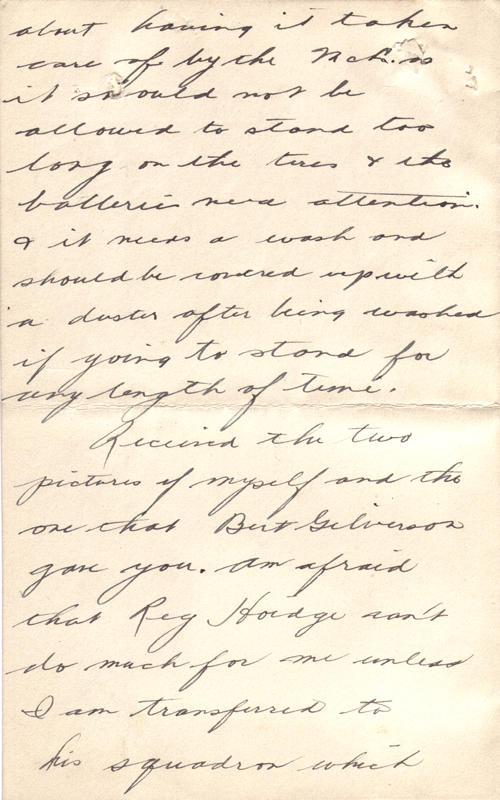 about having it taken
care of by the McL. as
it should not be
allowed to stand too
long on the tires & the
batteries need attention.
& it needs a wash and
should be covered up with
a duster after being washed
if going to stand for
any length of time.
Received the two
pictures of myself and the
one that Bert Gilverson
gave you. Am afraid
that Reg Hordge can't
do much for me unless
I am transferred to
his squadron which